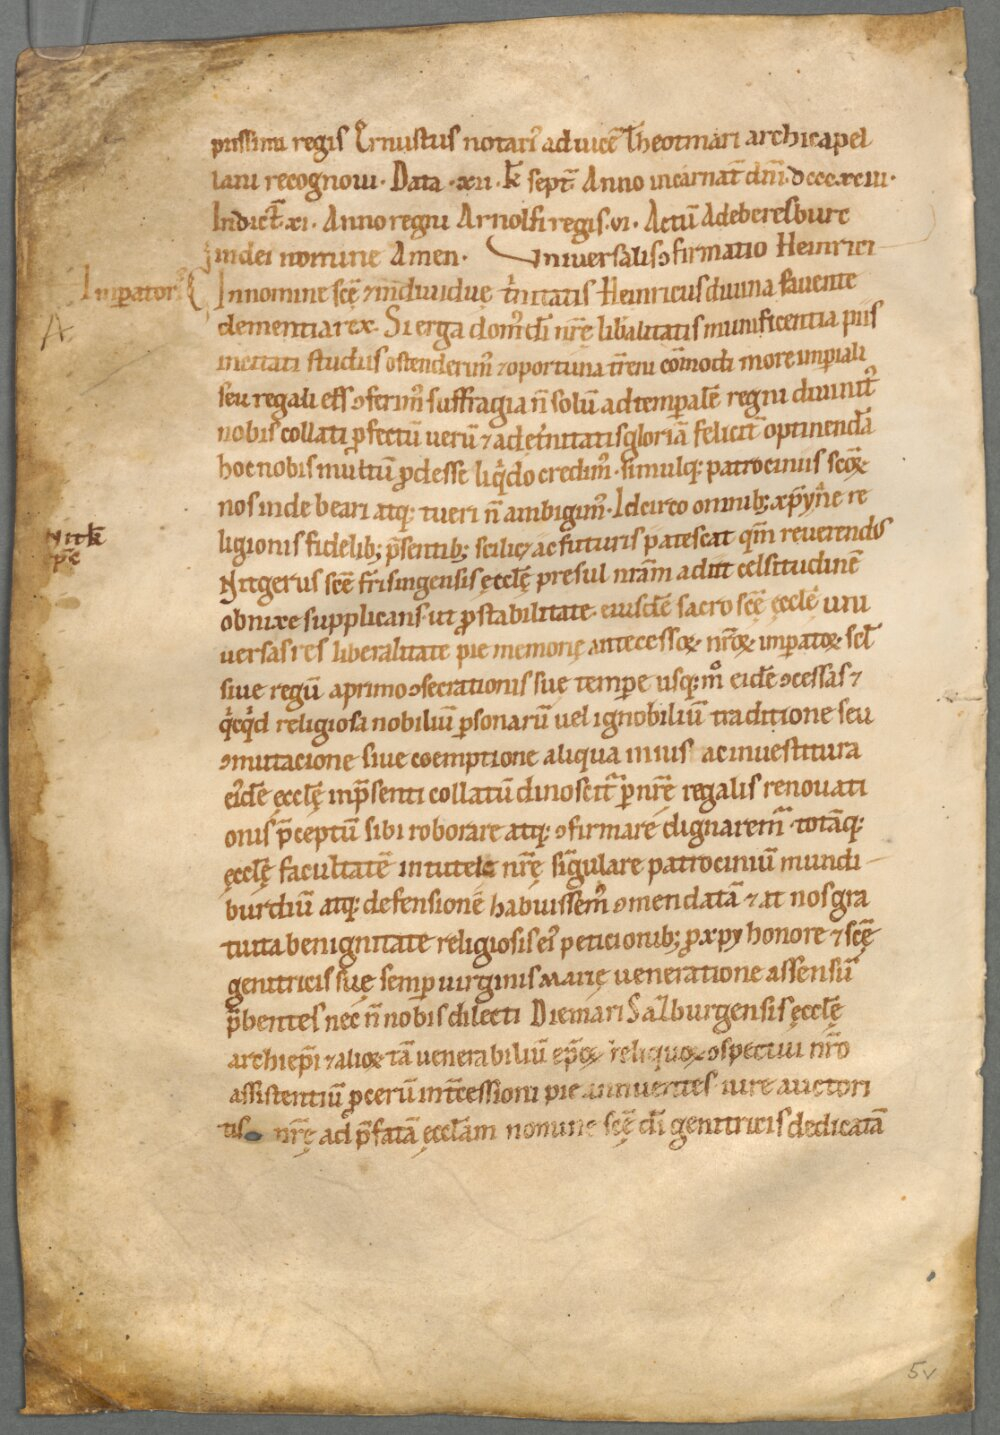 piissimi regis Ernustus notari᾽ ad uicē Theotmari archicapel
lani recognoui · Data · xii · kl̄ sept̄ Anno incarnat̄ dn̄i · dccc · xciii ·
Indict̄ · xi · Anno regni Arnolfi regis · vi · Actū Adeberesburc
in dei nomine Amen · Vniversalis ꝯfirmatio Heinrici
Imꝑatoris
In nomine scę̄ ⁊ indiuiduę tͥnitatis Heinricus diuina fauente
clementia rex · Si erga domᷣ dī nr̄ę liƀalitatis munificentia piis
A
incitati studiis ostenderimᷣ ⁊ oportuna t̄reni cōmodi more imꝑiali
seu regali ess ꝯferimᷣ suffragia n̄ solū ad temꝑalē regni diuinitᷣ
nobis collati ꝓfectū uerū ⁊ ad ęt̄nitatis gloriā felicit̄ optinendā
hoc nobis multū ꝓdesse liqͥdo credimᷣ · simulqꝫ patrociniis scōꝝ
nos inde beari atqꝫ tueri n̄ ambigimᷣ · Idcirco omnibꝫ xp̄yͣne re
Nitk̄
ligionis fidelibꝫ p̄sentibꝫ scilic⁊ ac futuris patescat qm̄ reuerendᷣ
pc̄
Nitgerus scē frisingensis ęcclę̄ presul nr̄am adiit celsitudinē
obnixe supplicans · ut ꝓ stabilitate · eiusdē sacro scę̄ ęcclę̄ uni
uersas res liberalitate pie memorię antecessoꝝ nr̄oꝝ imꝑatoꝝ scl̄
siue regū a primo ꝯsecrationis suę tempꝑe usqꝫ mͦ eidē ꝯcessas ⁊
qͥcqͥd religiosa nobiliū ꝑsonarū uel ignobiliū traditione seu
ꝯmutacione siue coemptione aliqua in ius ac inuestitura
ei᾽dē ęcclę̄ inp̄senti collatū dinoscitᷣ ꝑ nr̄ę regalis renouati
onis p̄ceptū sibi roborare atqꝫ ꝯfirmare dignaremᷣ · totāqꝫ
ęcclę̄ facultatē in tutelā nr̄ę singulare patrociniū mundi
burdiū atqꝫ defensionē habuissemᷣ ꝯmendatā ⁊ at nos gra
tuita benignitate religiosis ei᾽ peticionibꝫ ꝓ xpy honore ⁊ scę̄
genitricis suę semꝑ uirginis Marię ueneratione assensū
p̄bentes nec n̄ nobis dilecti Diemari Salburgensis ęcclę̄
archiep̄i ⁊ alioꝝ tā venerabiliū ep̄oꝝ reliquoꝝ ꝯspectui nr̄o
assistentiū ꝓcerū int̄cessioni pie annuentes iure auctori
tis nr̄ę ad p̄fatā ęccl̄am nomine scę̄ dī genitricis dedicatā
5v